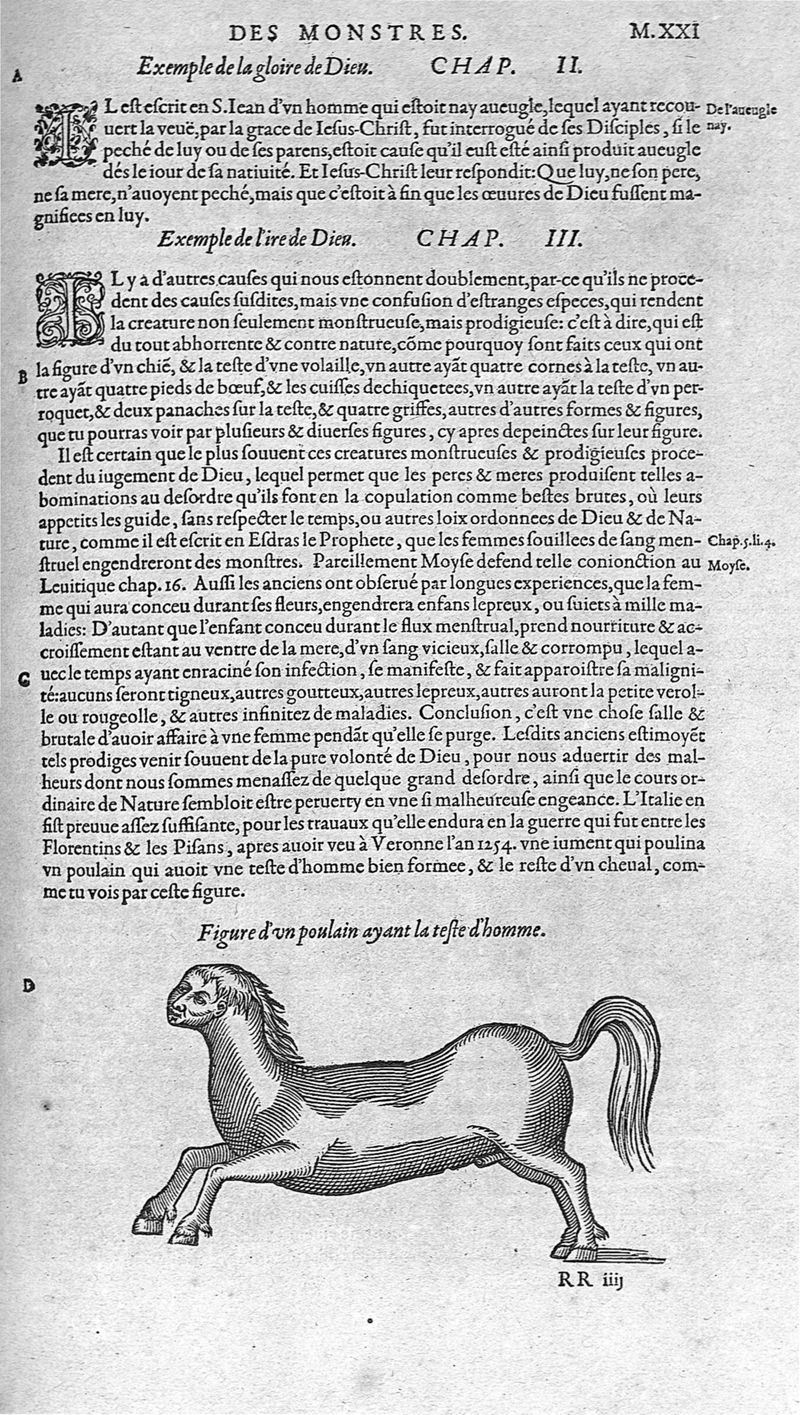 DES MONSTRES. M.XXI
A
Exemple de la gloire de Dieu. CHAP. II.
IL eſt eſcrit en S. Iean d'vn homme qui eſtoit nay aueugle, lequel ayant recou-
De l'aueugle
uert la veuë, par la grace de Ieſus-Chriſt, fut interrogué de ſes Diſciples, ſi le
nay.
peché de luy ou de ſes parens, eſtoit cauſe qu'il euſt eſté ainſi produit aueugle
dés le iour de ſa natiuité. Et Ieſus-Chriſt leur reſpondit: Que luy, ne ſon pere,
ne ſa mere, n'auoyent peché, mais que c'eſtoit à fin que les œuures de Dieu fuſſent ma-
gnifiees en luy.
Exemple de l'ire de Dieu. CHAP. III.
IL y a d'autres cauſes qui nous eſtonnent doublement, par-ce qu'ils ne proce-
dent des cauſes ſuſdites, mais vne confuſion d'eſtranges eſpeces, qui rendent
la creature non ſeulement monſtrueuſe, mais prodigieuſe: c'eſt à dire, qui eſt
du tout abhorrente & contre nature, cõme pourquoy ſont faits ceux qui ont
B
la figure d'vn chiẽ, & la teſte d'vne volaille, vn autre ayãt quatre cornes à la teſte, vn au-
tre ayãt quatre pieds de bœuf, & les cuiſſes dechiquetees, vn autre ayãt la teſte d'vn per-
roquet, & deux panaches ſur la teſte, & quatre griffes, autres d'autres formes & figures,
que tu pourras voir par pluſieurs & diuerſes figures, cy apres depeinctes ſur leur figure.
Il eſt certain que le plus ſouuent ces creatures monſtrueuſes & prodigieuſes proce-
dent du iugement de Dieu, lequel permet que les peres & meres produiſent telles a-
bominations au deſordre qu'ils font en la copulation comme beſtes brutes, où leurs
appetits les guide, ſans reſpecter le temps, ou autres loix ordonnees de Dieu & de Na-
ture, comme il eſt eſcrit en Eſdras le Prophete, que les femmes ſouillees de ſang men-
Chap. 5. li. 4.
ſtruel engendreront des monſtres. Pareillement Moyſe defend telle conionction au
Moyſe.
Leuitique chap. 16. Auſſi les anciens ont obſerué par longues experiences, que la fem-
me qui aura conceu durant ſes fleurs, engendrera enfans lepreux, ou ſuiets à mille ma-
ladies: D'autant que l'enfant conceu durant le flux menſtrual, prend nourriture & ac-
croiſſement eſtant au ventre de la mere, d'vn ſang vicieux, ſalle & corrompu, lequel a-
C
uec le temps ayant enraciné ſon infection, ſe manifeſte, & fait apparoiſtre ſa maligni-
té: aucuns ſeront tigneux, autres goutteux, autres lepreux, autres auront la petite verol-
le ou rougeolle, & autres infinitez de maladies. Concluſion, c'eſt vne choſe ſalle &
brutale d'auoir affaire à vne femme pendãt qu'elle ſe purge. Leſdits anciens eſtimoyẽt
tels prodiges venir ſouuent de la pure volonté de Dieu, pour nous aduertir des mal-
heurs dont nous ſommes menaſſez de quelque grand deſordre, ainſi que le cours or-
dinaire de Nature ſembloit eſtre peruerty en vne ſi malheureuſe engeance. L'Italie en
fiſt preuue aſſez ſuffiſante, pour les trauaux qu'elle endura en la guerre qui fut entre les
Florentins & les Piſans, apres auoir veu à Veronne l'an 1254. vne iument qui poulina
vn poulain qui auoit vne teſte d'homme bien formee, & le reſte d'vn cheual, com-
me tu vois par ceſte figure.
Figure d'vn poulain ayant la teſte d'homme.
D
RR iiij